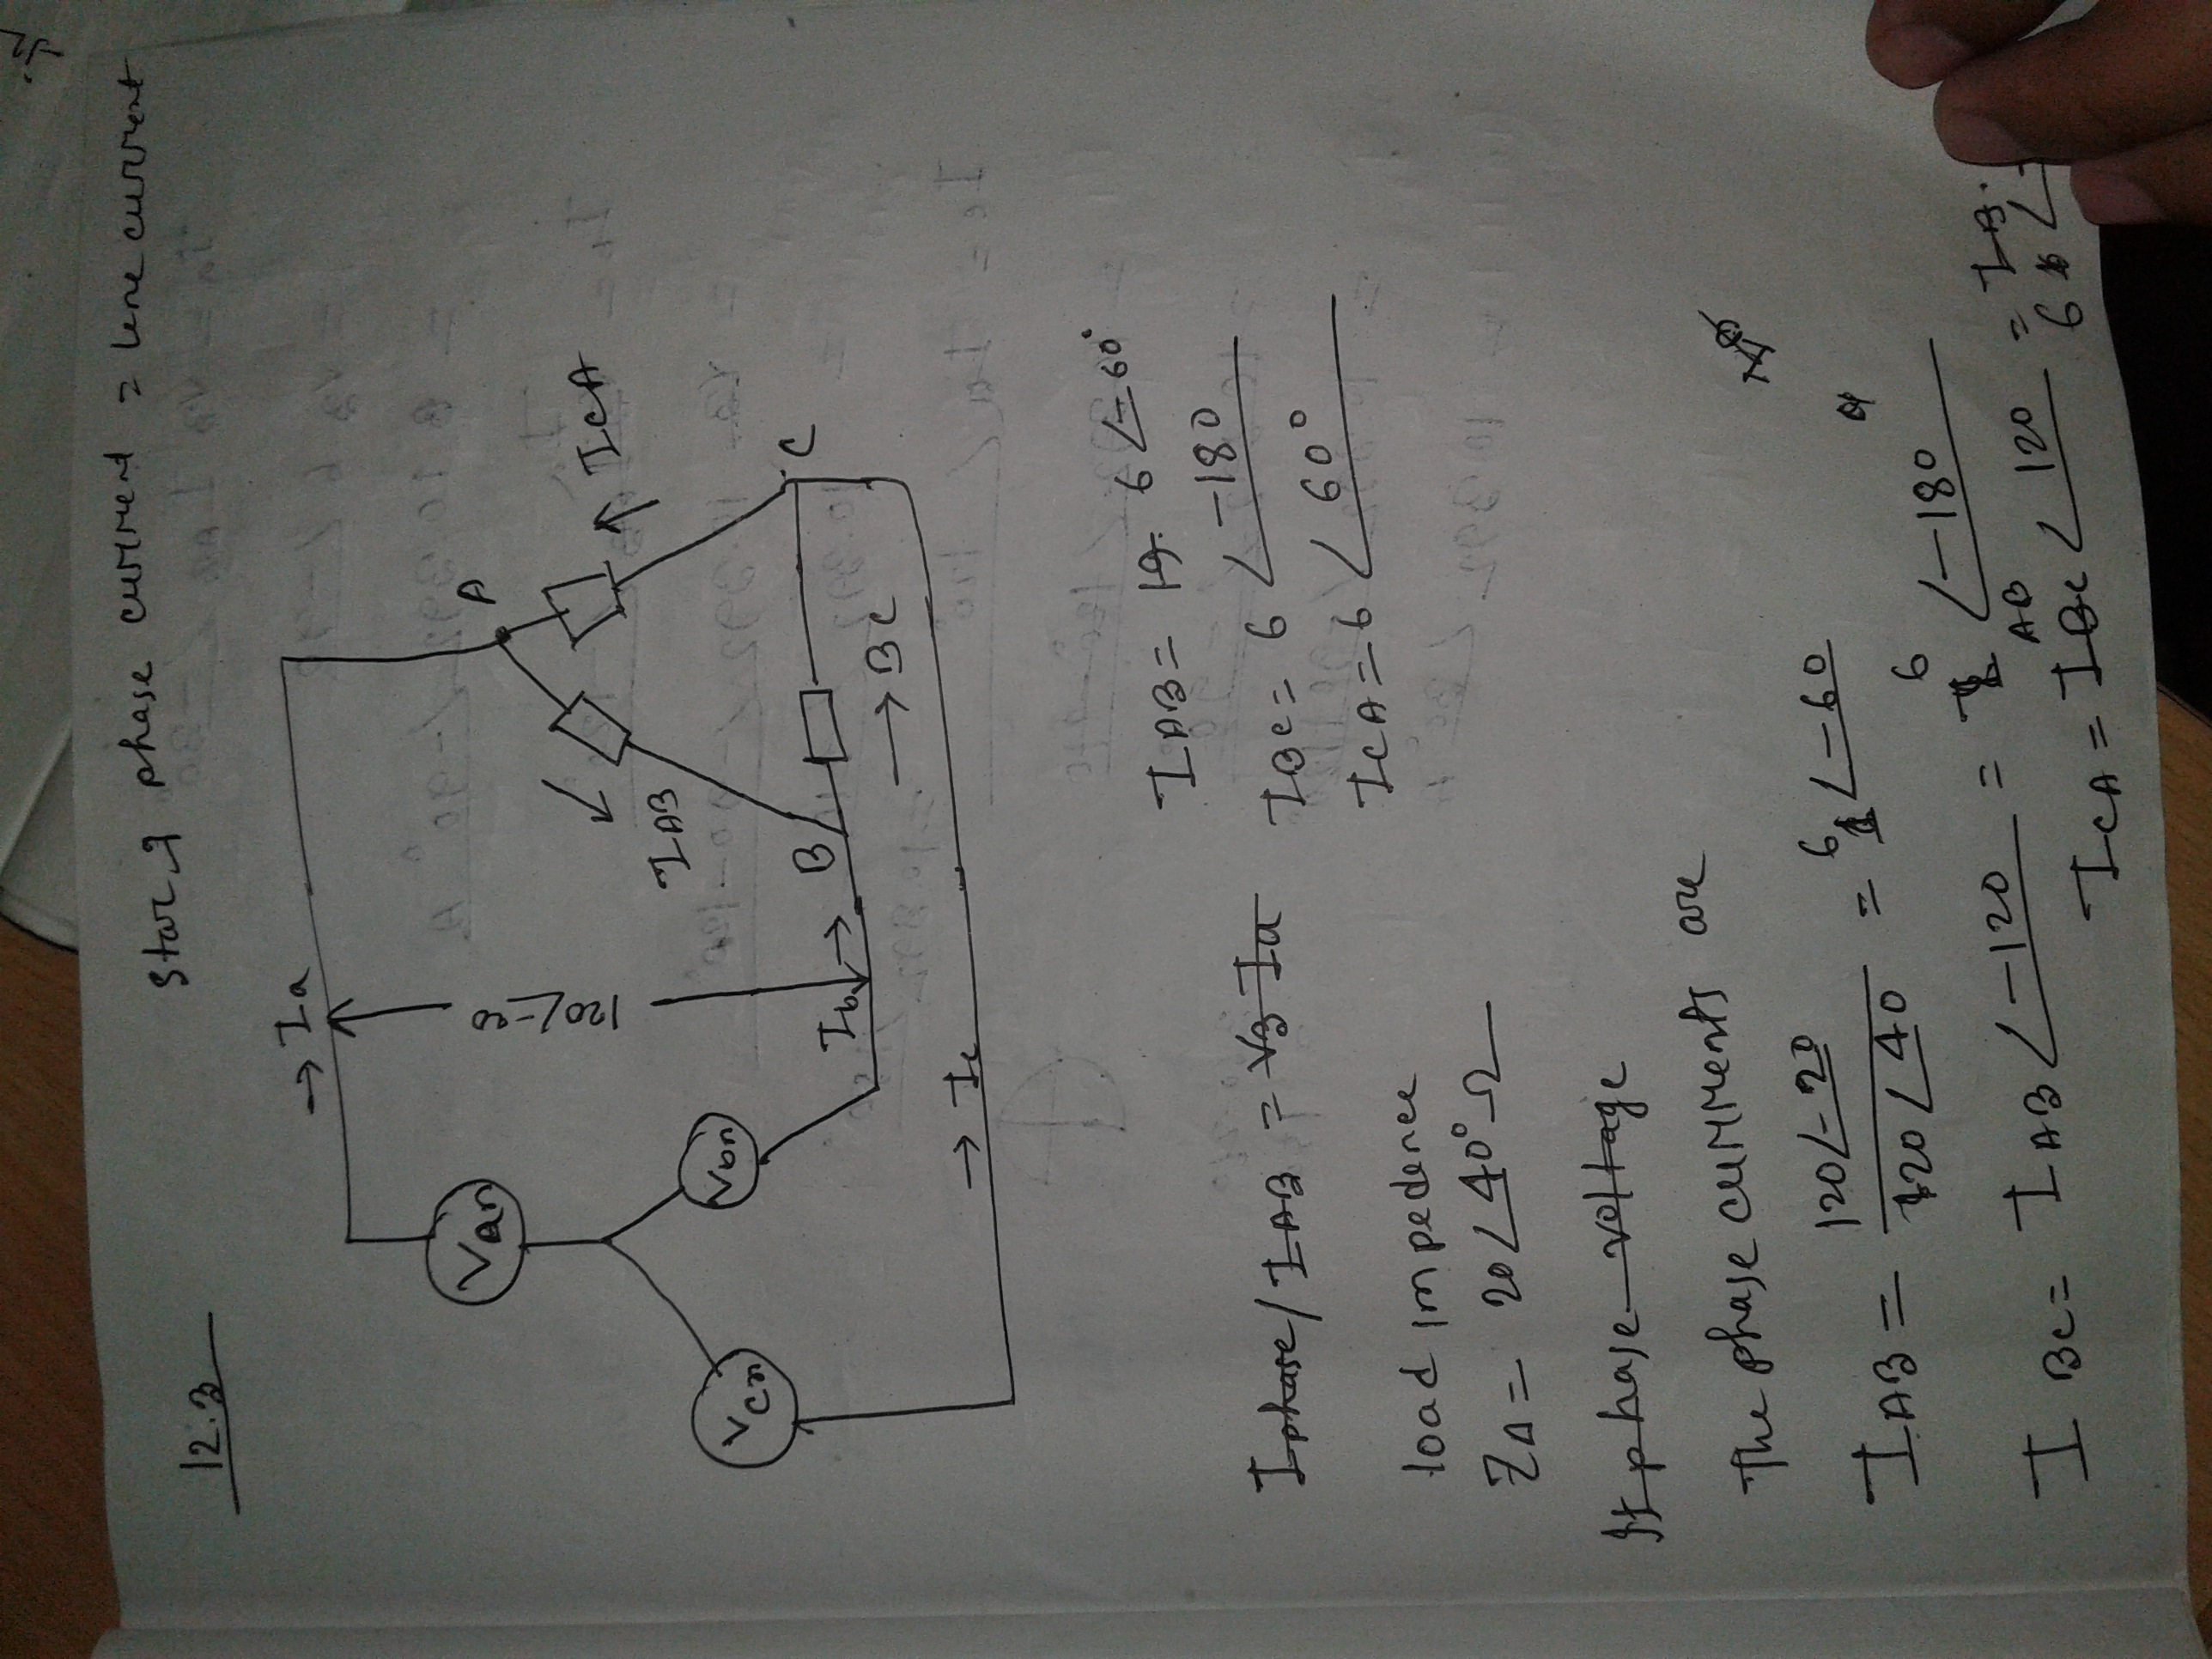 Star → phase current = line current
12.3
→ Ia
Van
120∠-20
A
ICA
IAB
Vcn
Vbn
Ib →
B
C
→ BC
→ Ic
IAB = 19. 6∠-60°
IBC = 6∠-180
ICA = 6∠60°
Iphase/IAB = √3 Ia
load impedence
ZΔ = 20∠40° Ω
If phase voltage
The phase currents are
IAB = 120∠-20 / 20∠40 = 6∠-60
IBC = IAB∠-120 = 6∠-180
ICA = IAB∠120 = 6∠